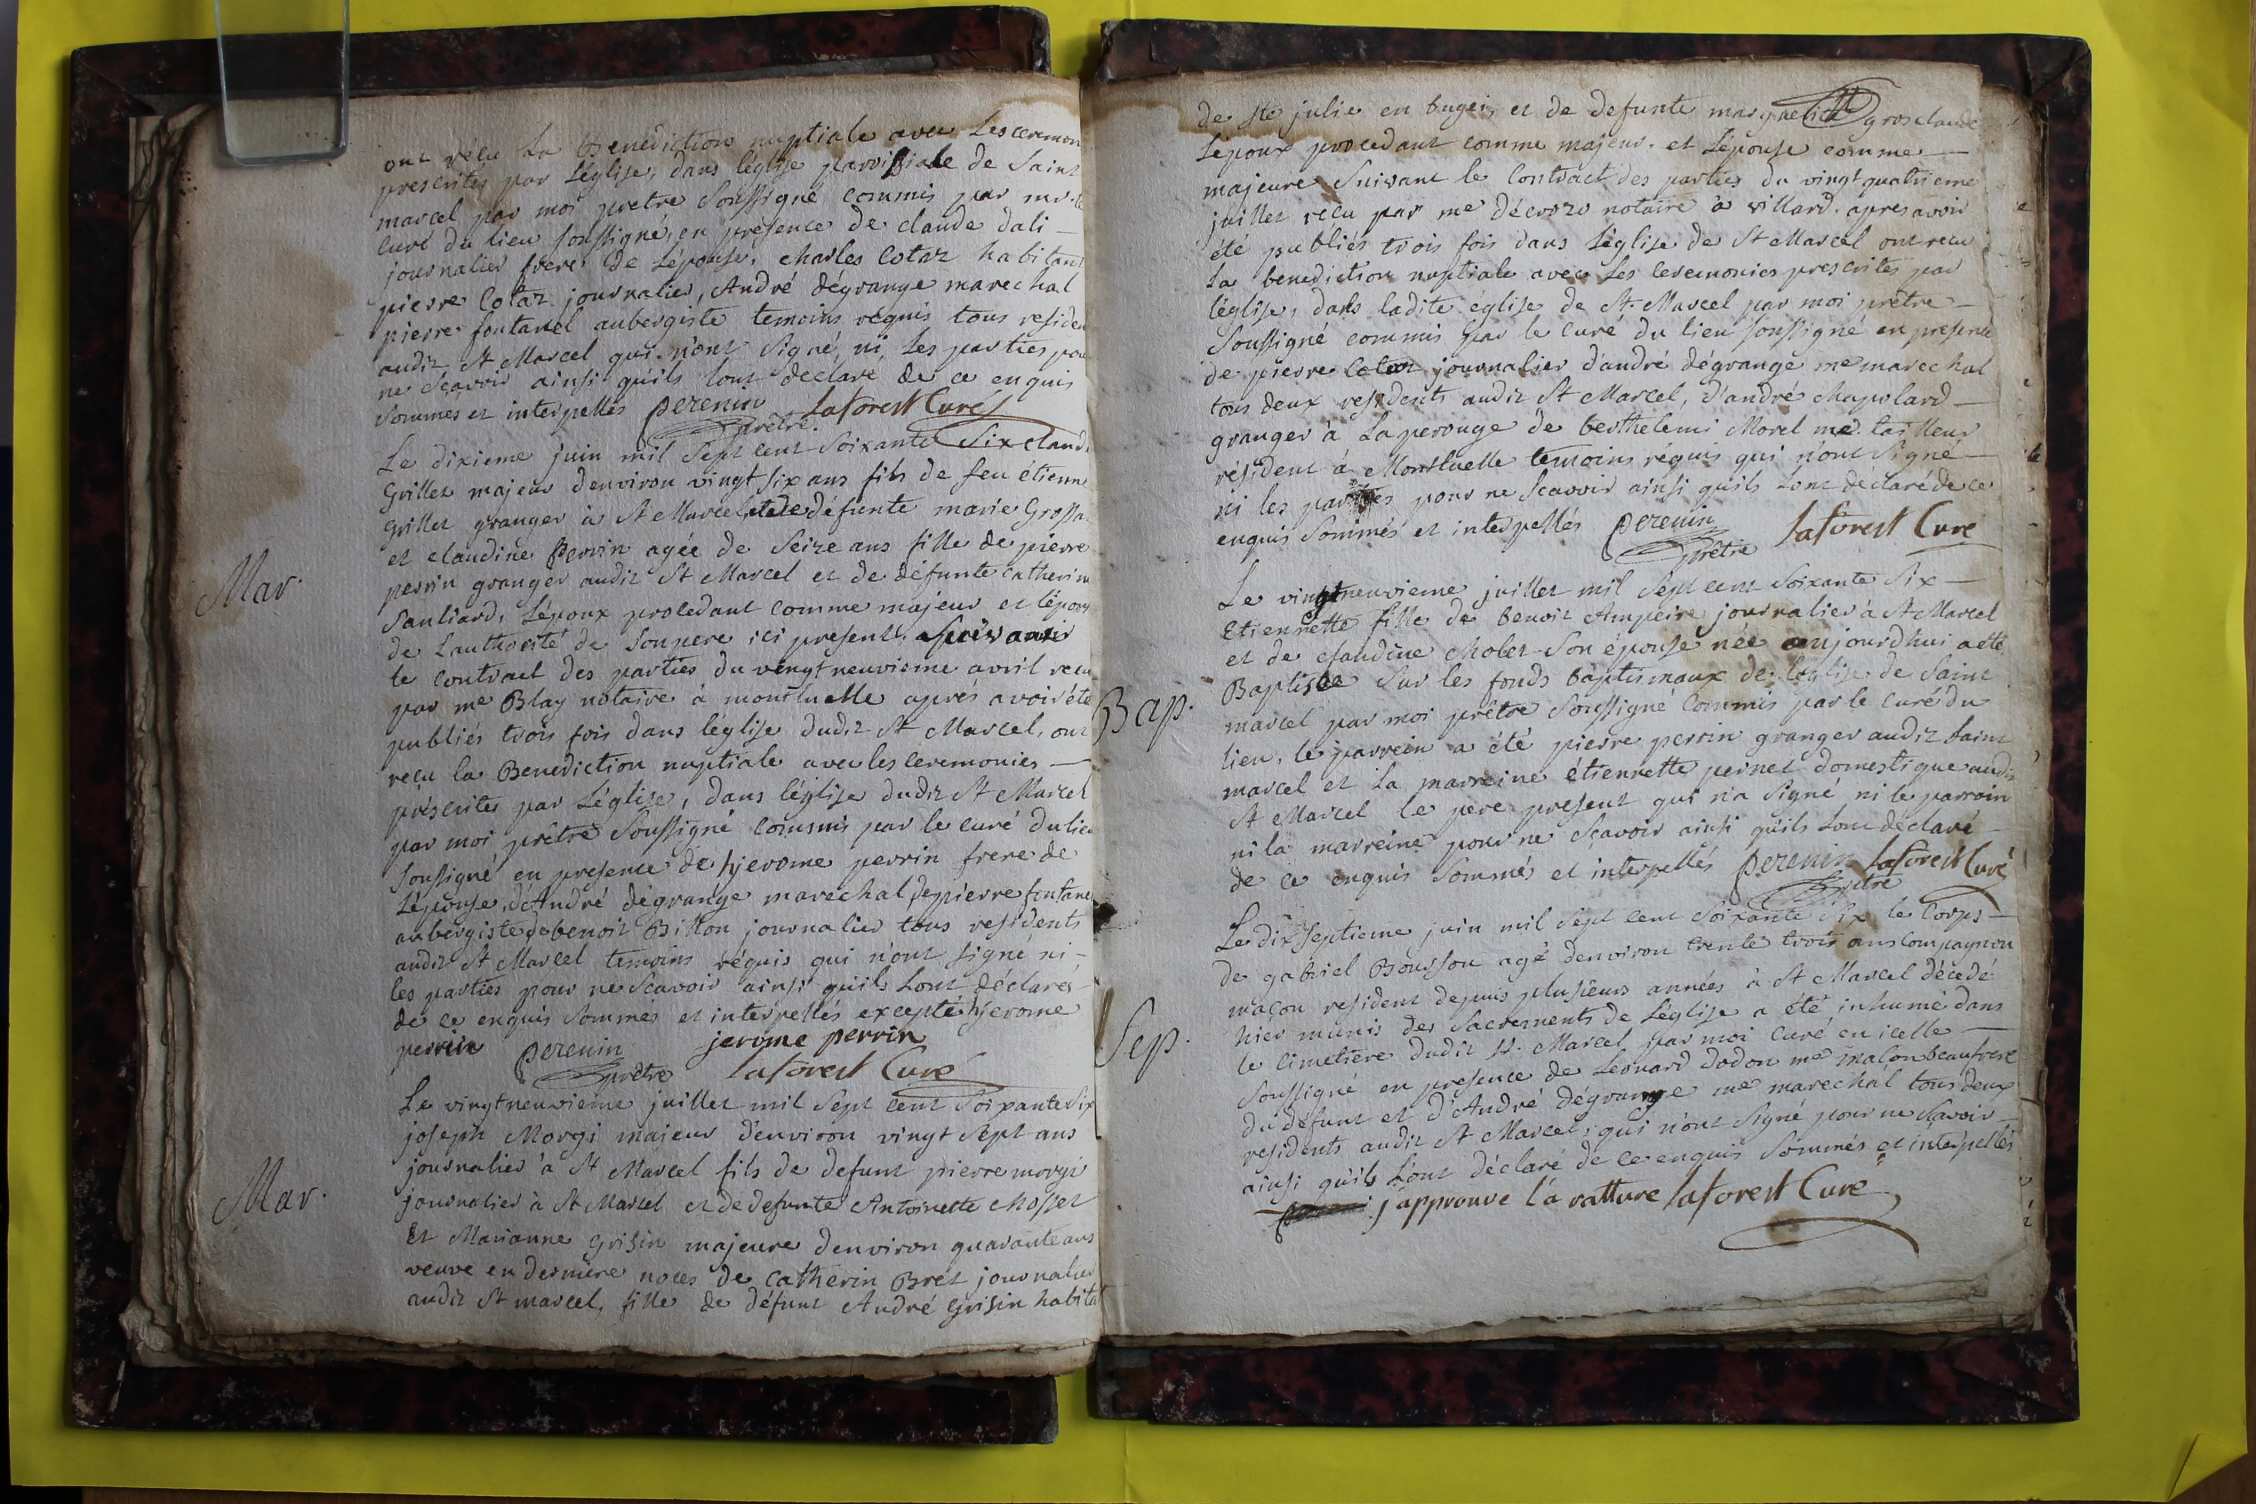 ont reçu la Benediction nuptiale avec Les ceremon
prescrites par Léglise, dans léglise parroissiale de Saint
marcel par moi pretre Soussigné commis par mr. le
curé du lieu soussigné, en présence de claude dali —
journalier frere de Lépouse, charles Cotaz habitant
pierre Cotaz journalier, André dégrange marechal
pierre fontanel aubergiste temoins requis tous residen
audit St Marcel qui n'ont signé, ni Les parties pour
ne Sçavoir ainsi quils Lont declaré de ce enquis
Sommés et interpellés perenin prêtre Laforest Curé
Le dixieme juin mil Sept cent Soixante Six claude
Grillet majeur denviron vingt six ans fils de feu étienne
Grillet granger à St Marcel et de défunte marie Grossa
et claudine Perrin agée de Seize ans fille de pierre
perrin granger audit St Marcel et de défunte catherine
Sauliard, Lépoux procedant comme majeur et lépouse
de Lauthorité de Son pere ici present. Suivant
le contract des parties du vingt neuvieme avril recu
par me Blay notaire à montluelle aprés avoir été
publiés trois fois dans léglise dudit St Marcel, ont
reçu la Benediction nuptiale avec les ceremonies —
préscrites par Léglise, dans léglise dudit St Marcel
par moi prêtre Soussigné commis par le curé du lieu
Soussigné en presence de hjerome perrin frere de
Lépouse, d'André dégrange marechal, de pierre fontanel
aubergiste de benoit Billon journalier tous residents
audit St Marcel temoins réquis qui n'ont signé ni —
les parties pour ne Scavoir ainsi quils Lont déclarés
de ce enquis Sommés et intérpellés excepté hjerome
perrin perenin prêtre jerome perrin
Laforest Curé
Mar.
Le vingt neuvieme juillet mil Sept cent Soixante Six
joseph Morgi majeur d'environ vingt Sept ans
journalier à St Marcel fils de defunt pierre morgi
journalier à St Marcel et de defunte Antoinette chosset
Et Marianne Grisin majeure denviron quarante ans
veuve en derniere noces de Catherin Bret journalier
audit St marcel, fille de défunt André Grisin habita
Mar.
de Ste julie en bugei, et de defunte margueritte grosclaude
Lépoux procedant comme majeur. et Lépouse comme —
majeure Suivant le Contract des parties du vingt quatrieme
juillet reçu par me décroso notaire à villard. apres avoir
été publiés trois fois dans Léglise de St Marcel ont reçu
La benediction nuptiale avec Les ceremonies prescrites par
léglise, dans ladite église de St Marcel par moi prêtre —
Soussigné commis par le Curé du lieu soussigné en presence
de pierre Cotaz journalier d'andré dégrange me marechal
tous deux residents audit St Marcel, d'andré chapolard —
granger à Laperouge de berthelemi Morel me tailleur
résident à Montluelle temoins réquis qui n'ont Signé —
ni les parties pour ne Scavoir ainsi quils Lont déclaré de ce
enquis Sommés et interpellés perenin prêtre Laforest Curé
Le vingt neuvieme juillet mil Sept cent Soixante Six —
Etiennette fille de benoit Ampeire journalier à St Marcel
et de claudine cholet Son épouse née aujourdhui a été
Baptisée Sur les fonds baptismaux de léglise de Saint
marcel par moi prêtre Soussigné commis par le curé du
lieu, le parrein a été pierre perrin granger audit Saint
marcel et La marreine étiennette peinet domestique audit
St Marcel le pere present qui n'a Signé ni le parrein
ni la marreine pour ne Sçavoir ainsi quils Lont déclaré —
de ce enquis Sommé et interpellés perenin prêtre Laforest Curé
Bap.
Le dix Septieme juin mil Sept cent Soixante Six le Corps —
de gabriel Bousson agé denviron trente trois ans Compagnon
maçon resident depuis plusieurs années à St Marcel décedé
hier munis des Sacrements de Léglise a été inhumé dans
le cimetiere dudit St Marcel par moi Curé en icelle —
Soussigné en presence de Léonard dodon me maçon beaufrere
du defunt et d'André dégrange me marechal tous deux
residents audit St Marcel, qui n'ont signé pour ne Savoir —
ainsi quils L'ont déclaré de ce enquis Sommés et interpellés
j'approuve l'a ratture Laforest Curé
Sep.